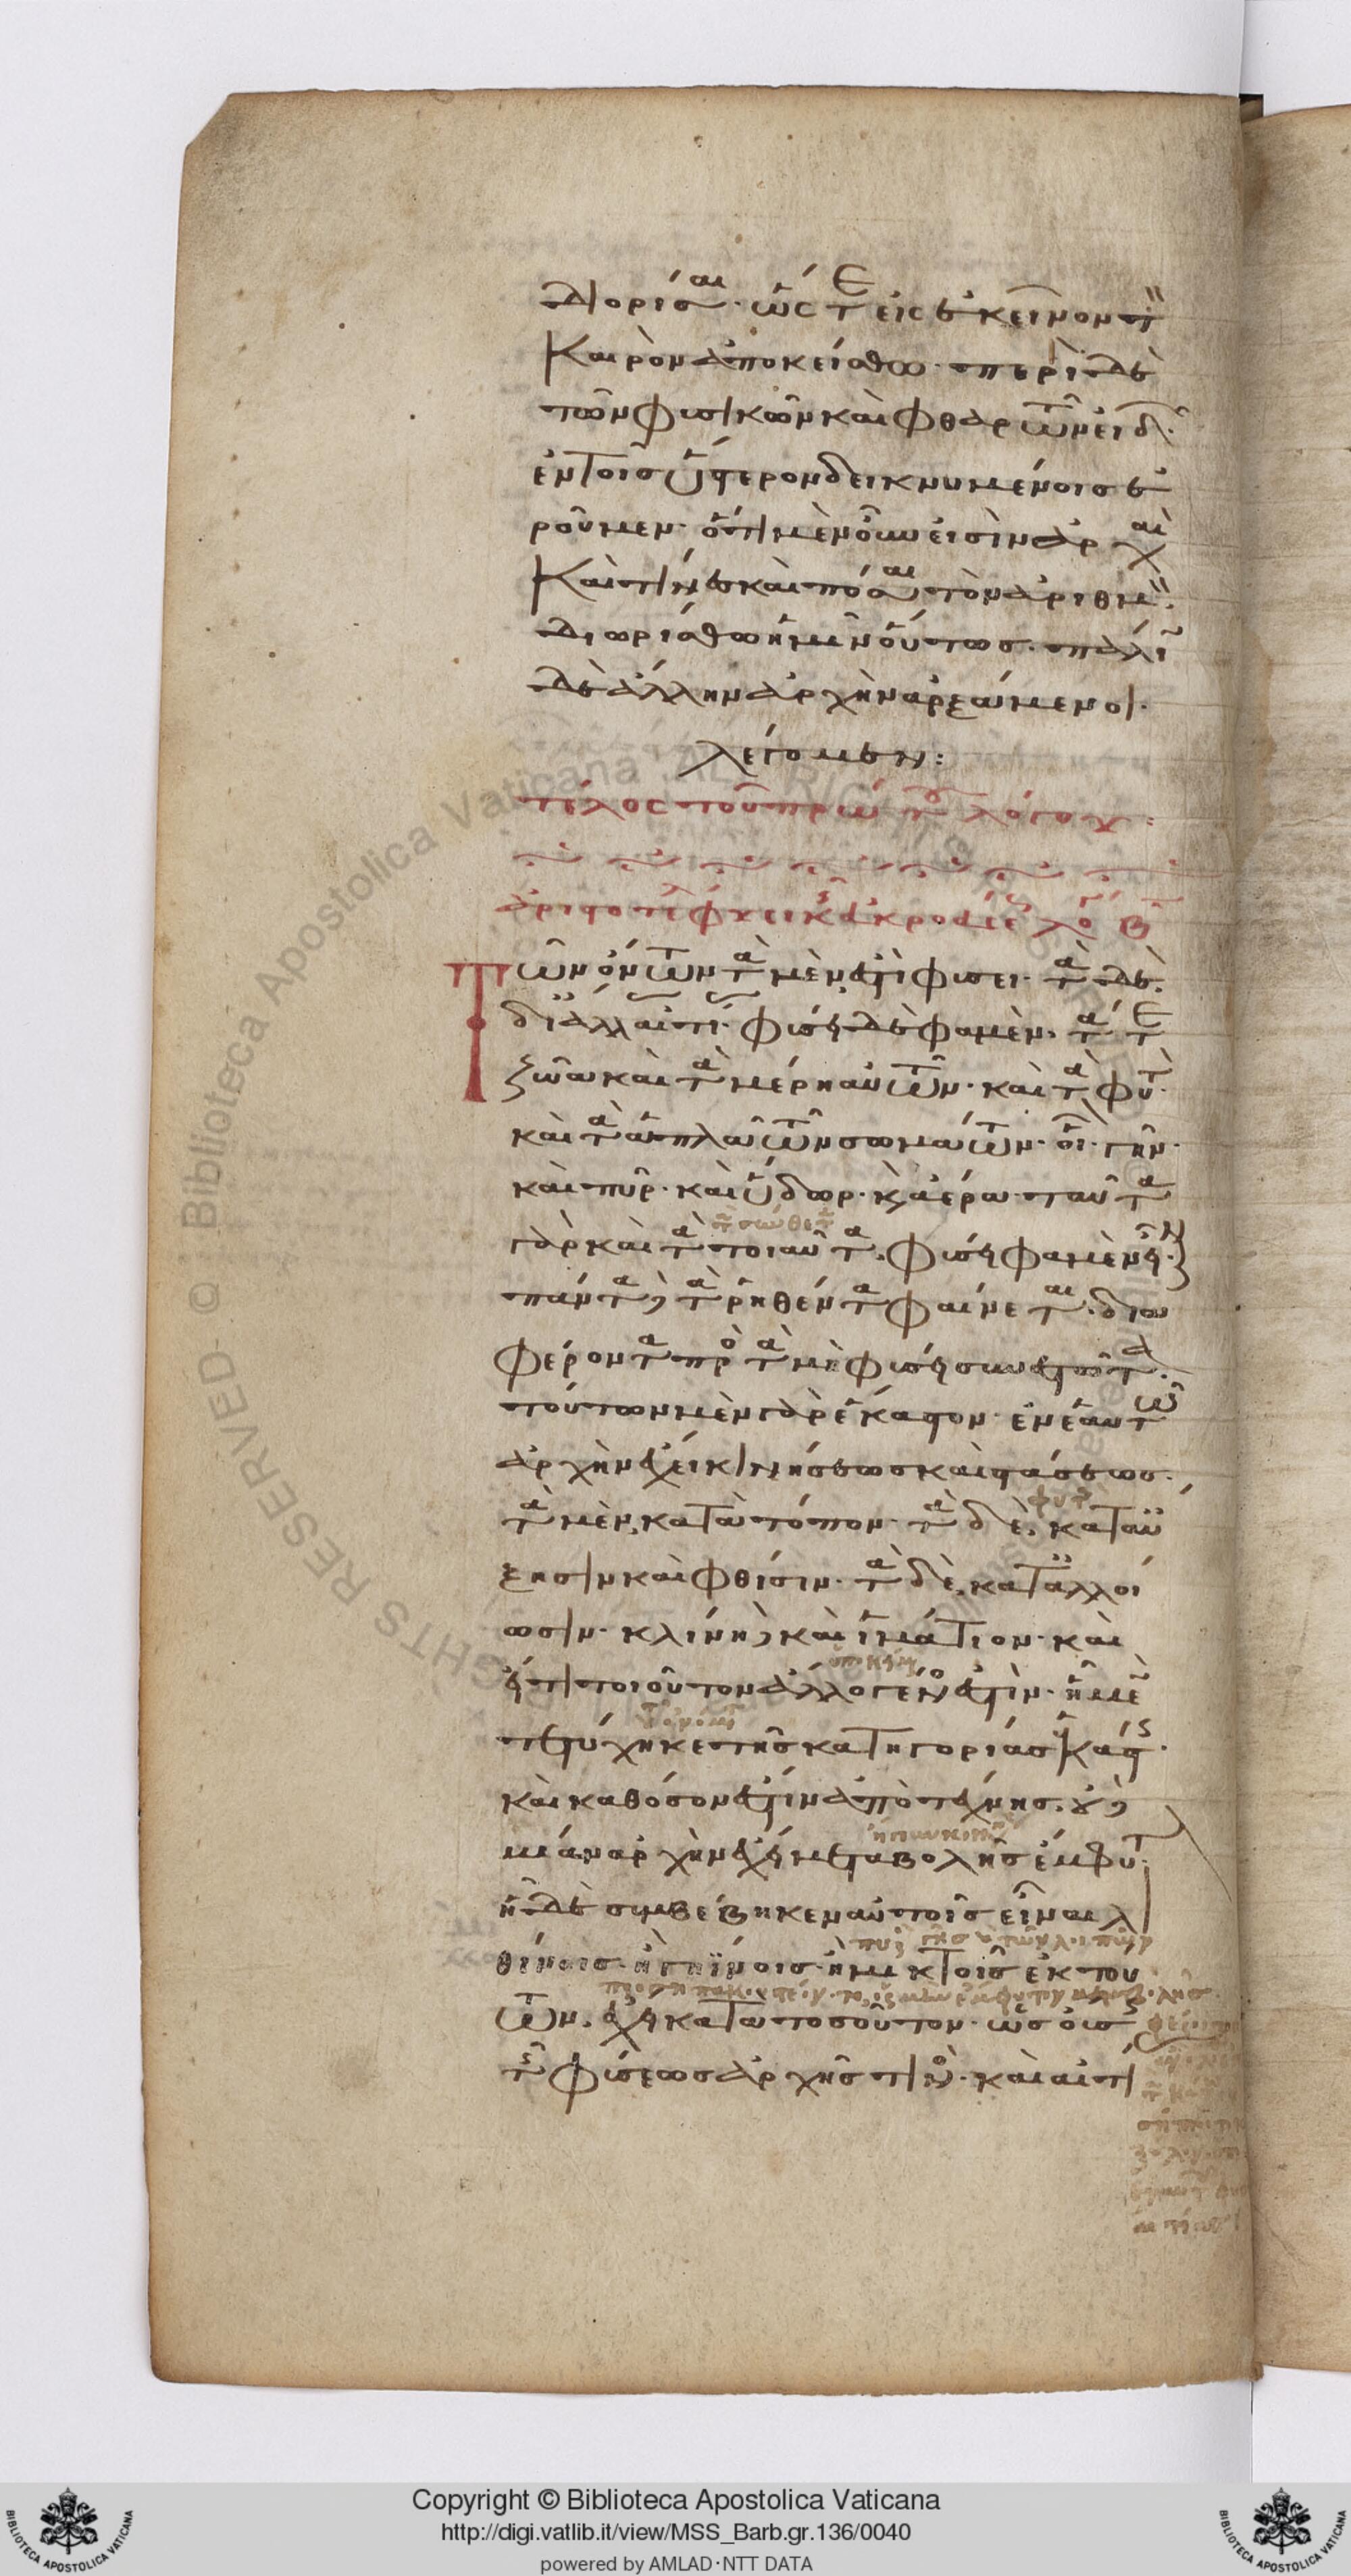 διορίσαι· ὥστε εἰς ἐκεῖνον τὸν
καιρὸν ἀποκείσθω· περὶ δὲ
τῶν φυσικῶν καὶ φθαρτῶν εἰδῶν
ἐν τοῖς ὕστερον δεικνυμένοις ἐ
ροῦμεν· ὅτι μὲν οὖν εἰσὶν ἀρχαὶ
καὶ τίνες καὶ πόσαι τὸν ἀριθμὸν·
διωρίσθω ἡμῖν οὕτως· πάλιν
δὲ ἄλλην ἀρχὴν ἀρξάμενοι·
λέγομεν:
τέλος τοῦ πρώτου λόγου:
ἀριστοτέλους φυσικῆς ἀκροάσεως λόγος β
Τῶν ὄντων τὰ μὲν ἐστὶ φύσει· τὰ δὲ
δι' ἄλλας αἰτίας· φύσει δὲ φαμὲν· τά τε
ζῶα καὶ τὰ μέρη αὐτῶν· καὶ τὰ φυτὰ·
καὶ τὰ ἁπλᾶ τῶν σωμάτων· οἷον γῆν·
καὶ πῦρ· καὶ ὕδωρ· καὶ ἀέρα· ταῦτα
γὰρ καὶ τὰ τοιαῦτα φύσει φαμὲν εἶναι·
πάντα δὲ τὰ ῥηθέντα φαίνεται δια
φέροντα πρὸς τὰ μὴ φύσει συνεστῶτα·
τούτων μὲν γὰρ ἕκαστον ἐν ἑαυτῷ
ἀρχὴν ἔχει κινήσεως καὶ στάσεως·
φυτὰ
τὰ μὲν κατὰ τόπον· τὰ δὲ κατ' αὔ
ξησιν καὶ φθίσιν· τὰ δὲ κατ' ἀλλοί
ωσιν· κλίνη δὲ καὶ ἱμάτιον· καὶ
εἴ τι τοιοῦτον ἄλλο γένος ἐστὶν· ᾗ μὲν
τετύχηκε τῆς κατηγορίας ἑκάστης·
καὶ καθόσον ἐστὶν ἀπὸ τέχνης· οὐδε
μίαν ἀρχὴν ἔχει μεταβολῆς ἔμφυτον·
ᾗ δὲ συμβέβηκεν αὐτοῖς εἶναι λι
θίνοις ἢ γηΐνοις ἢ μικτοῖς ἐκ τού
των· ἔχει κατὰ τοσοῦτον· ὡς οὔσης
τῆς φύσεως ἀρχῆς τινὸς· καὶ αἰτί
Copyright © Biblioteca Apostolica Vaticana
http://digi.vatlib.it/view/MSS_Barb.gr.136/0040
powered by AMLAD·NTT DATA